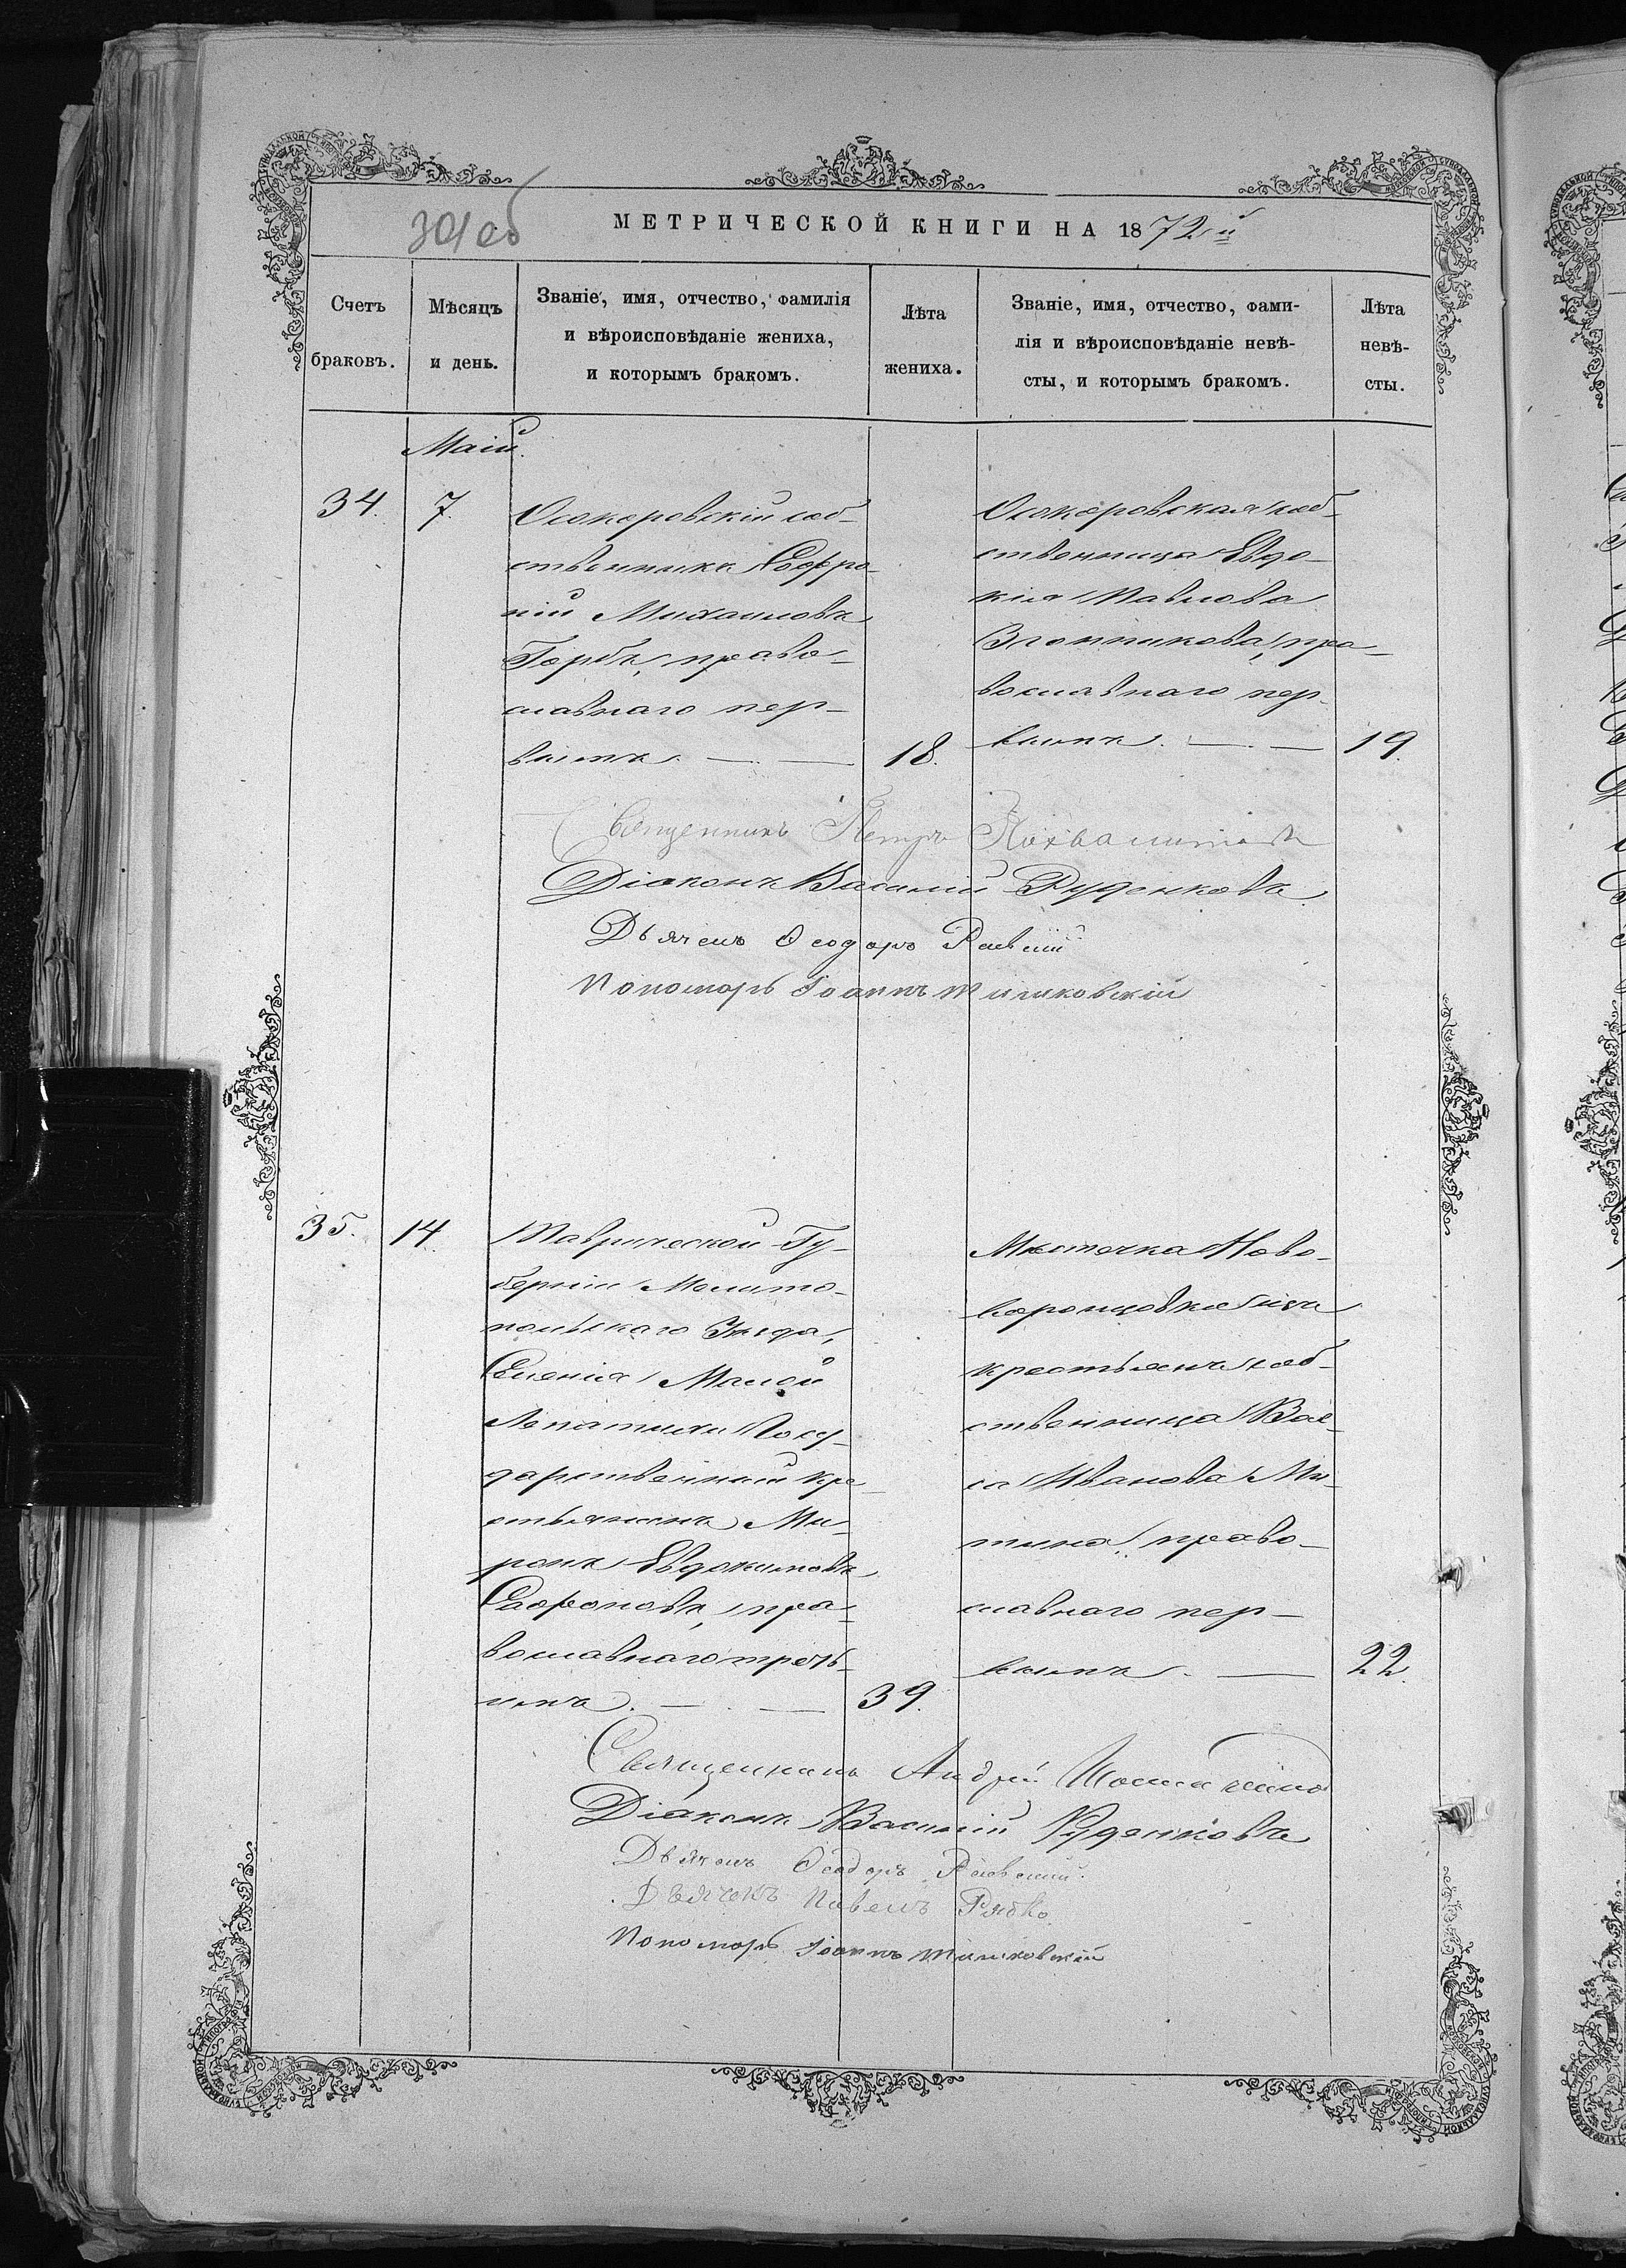 МЕТРИЧЕСКОЙ КНИГИ НА 1872й
Счетъ браковъ.
Мѣсяцъ и день.
Званіе, имя, отчество, фамилія
и вѣроисповѣданіе жениха,
и которымъ бракомъ.
Лѣта жениха.
Званіе, имя, отчество, фами-
лія и вѣроисповѣданіе невѣ-
сты, и которымъ бракомъ.
Лѣта невѣ-
сты.
Маій.
34.
7.
Осокоровскій соб-
ственникъ Софро-
ній Михаиловъ
Горбъ, право-
славнаго пер-
вымъ.
18.
Осокоровская соб-
ственница Евдо-
кія Павлова
пра-
вославнаго пер-
вымъ.
19.
Священникъ Петръ
Діаконъ Василій Руденковъ
Дьячекъ Ѳеодоръ
Пономарь Іоаннъ
35.
14.
Таврической Гу-
берніи Мелито-
польскаго Уѣзда,
Селенія Малой
Лепатихи Госу-
дарственный кре-
стьянинъ Ми-
ронъ Евдокимовъ
Сафоновъ, пра-
вославнаго треть-
имъ.
39.
Мѣстечка Ново-
воронцовки
крестьянка соб-
ственница Вас-
са Иванова Ми-
тина, право-
славнаго пер-
вымъ.
22.
Священникъ Андрей
Діаконъ Василій Руденковъ
Дьячекъ Ѳеодоръ
Дьячекъ Павелъ Рябко
Пономарь Іоаннъ